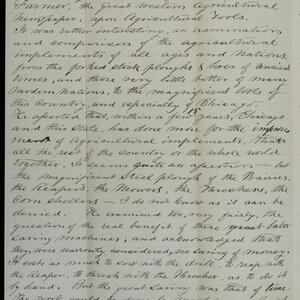 Farmer," the Great Western Agricultural
Newspaper, upon Agricultural Tools.
It was rather interesting, an examination
and comparison of the agricultural
implements of all ages and Nations,
from the forked stick ploughs & hoes of ancient
times, and those very little better of many
Modern Nations, to the magnificent tools of
this Country, and especially of Chicago.
He asserted that, within a few years, Chicago
and this State, has done more for the improve
ment of Agricultural implements, than
all the rest of the country or the whole world
together. It seems quite an assertion but
the magnificent Steel plough of the Prairies,
the Reapers, the Mowers, the Threshers, the
Corn Shellers — I do not know as it can be
denied. He examined too, very fairly, the
question of the real benefit of these great labor
saving machines, and acknowledged that
they were not considered, no saving of money.
It costs as much to sow with the drill, to reap with
the Reaper, to thresh with the Thresher, as to do it
by hand. But the great saving was that of time.